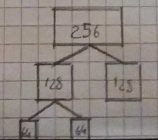 256
128 128
64 64